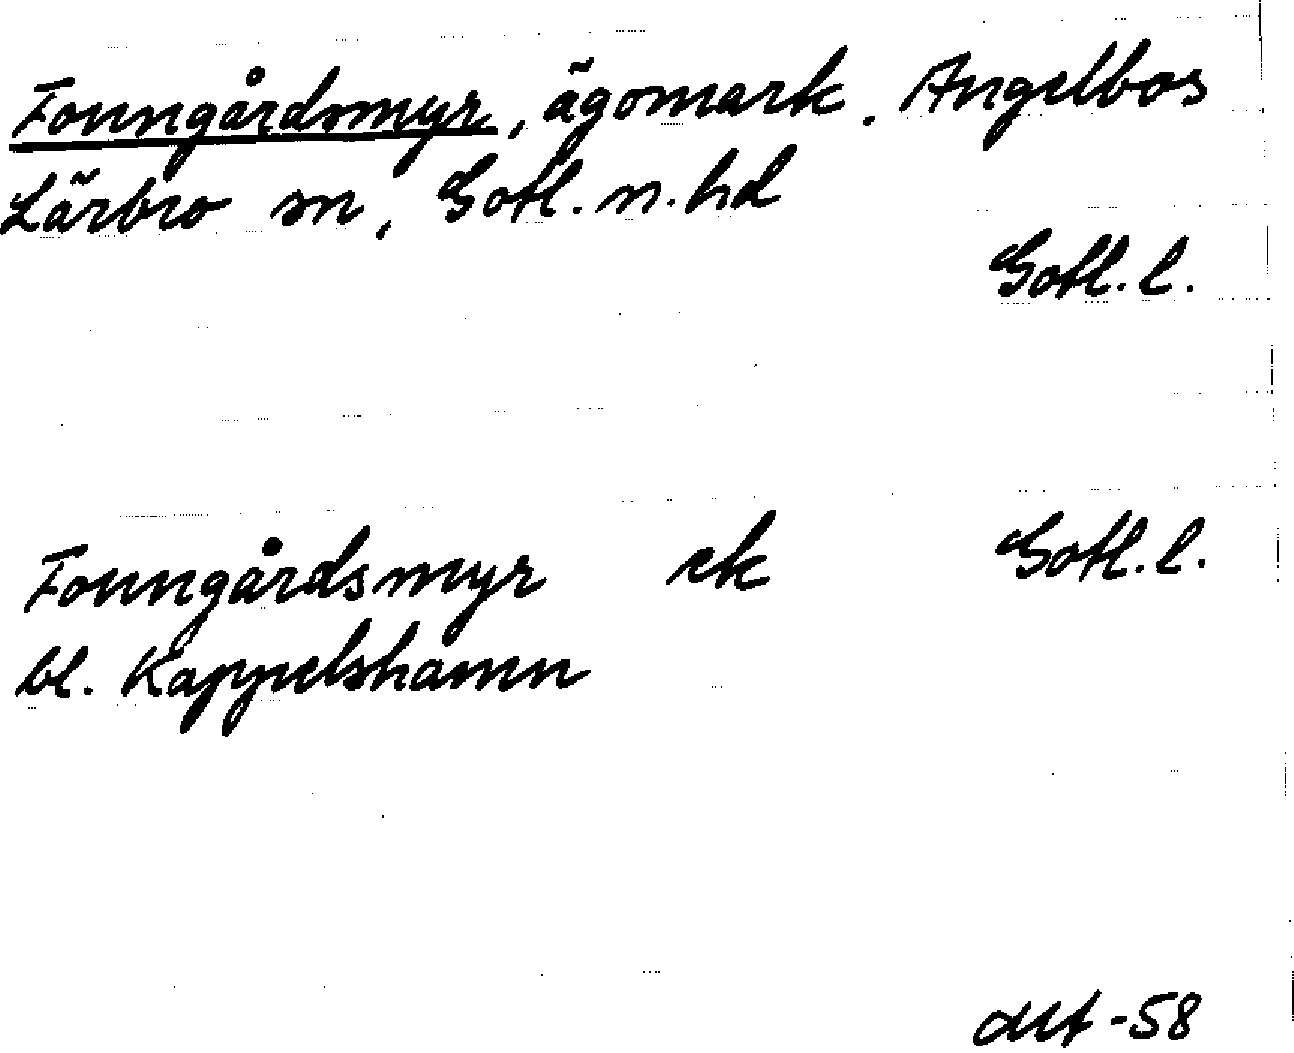 Fonngårdsmyr, ägomark. Angelbos
Lärbro sn, Gotl. n. hd
Gotl. l.
Fonngårdsmyr ek Gotl. l.
bl. Kappelshamn
-58